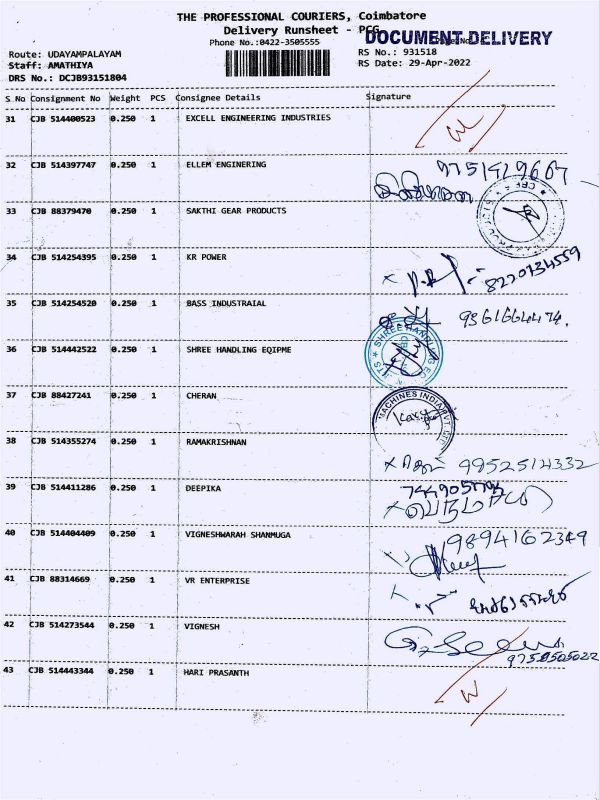 THE PROFESSIONAL COURIERS, Coimbatore
Delivery Runsheet - PCG
DOCUMENT DELIVERY
Phone No.:0422-3505555
Route: UDAYAMPALAYAM
RS No.: 931518
Staff: AMATHIYA
RS Date: 29-Apr-2022
DRS No.: DCJB93151804
S No Consignment No Weight PCS Consignee Details Signature
31 CJB 514400523 0.250 1 EXCELL ENGINEERING INDUSTRIES
32 CJB 514397747 0.250 1 ELLEM ENGINERING
33 CJB 88379470 0.250 1 SAKTHI GEAR PRODUCTS
34 CJB 514254395 0.250 1 KR POWER 8220134559
35 CJB 514254520 0.250 1 BASS INDUSTRAIAL 9361664474.
36 CJB 514442522 0.250 1 SHREE HANDLING EQIPME
SHREE HANDLING
37 CJB 88427241 0.250 1 CHERAN
MACHINES INDIA PVT. LTD
38 CJB 514355274 0.250 1 RAMAKRISHNAN 9952514332
39 CJB 514411286 0.250 1 DEEPIKA
40 CJB 514404409 0.250 1 VIGNESHWARAH SHANMUGA 9894162349
41 CJB 88314669 0.250 1 VR ENTERPRISE
42 CJB 514273544 0.250 1 VIGNESH
9750505022
43 CJB 514443344 0.250 1 HARI PRASANTH